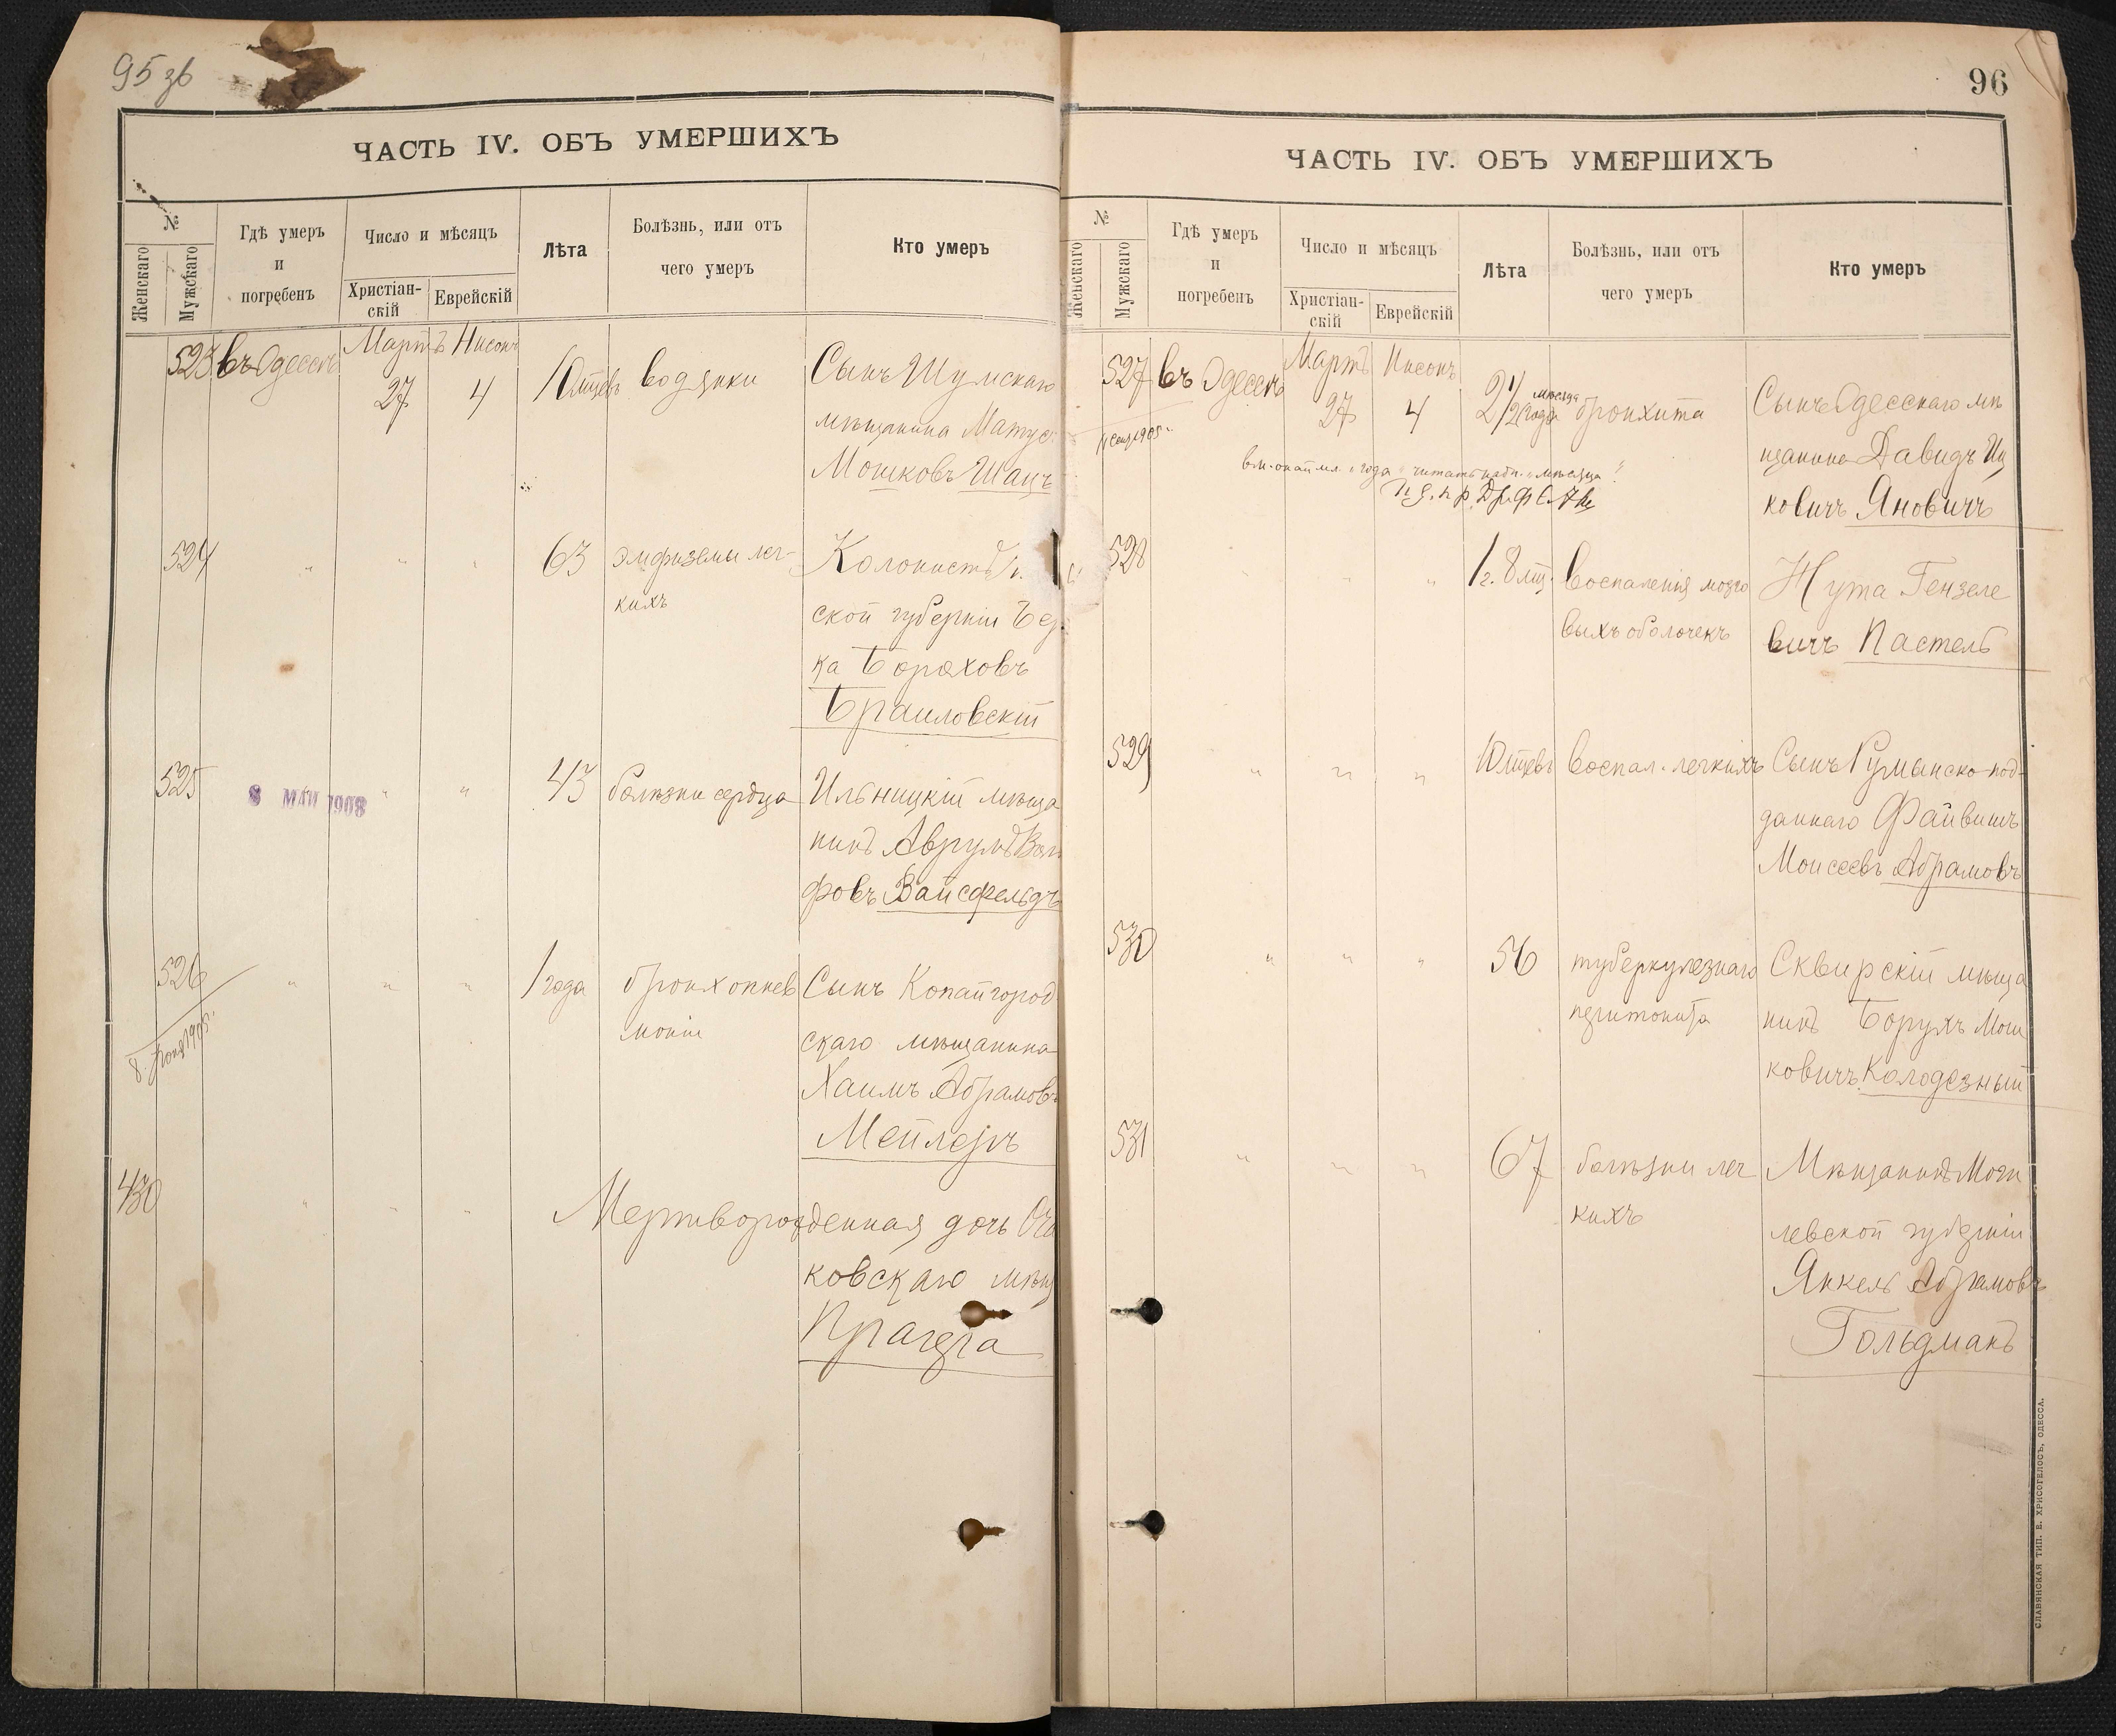 95 зв
ЧАСТЬ IV. ОБЪ УМЕРШИХЪ
№
Женскаго
Мужскаго
Гдѣ умеръ
и
погребенъ
Число и мѣсяцъ
Христіан-
скій
Еврейскій
Лѣта
Болѣзнь, или отъ
чего умеръ
Кто умеръ
Мартъ Нисонъ
523 въ Одессѣ 27 4 10 мцевъ водянки Сынъ Шумскаго
мѣщанина Матус
Мошковъ Шацъ
524 " " " 63 эмфиземы лег-
кихъ
Колонистъ
ской губерніи Бер
ка Бораховъ
Браиловскій
525 8 МАЙ 1908 " " 43 болѣзни сердца Ильницкій мѣща
нинъ Аврумъ Воль
фовъ Вайсфельдъ
526 " " " 1 года бронхопнев
моніи
8. 1905г.
Сынъ Копайгород
скаго мѣщанина
Хаимъ Абрамовъ
Мейлеръ
430 " " " Мертворожденная дочь Оча
ковскаго мѣщ
Прагера
96
ЧАСТЬ IV. ОБЪ УМЕРШИХЪ
№
Женскаго
Мужскаго
Гдѣ умеръ
и
погребенъ
Число и мѣсяцъ
Христіан-
скій
Еврейскій
Лѣта
Болѣзнь, или отъ
чего умеръ
Кто умеръ
Мартъ Нисонъ
527 въ Одессѣ 27 4 2 1/2 года мѣсяца бронхита Сынъ Одесскаго мѣ
щанина Давидъ Иц
ковичъ Яновичъ
1905г.
года читать надп. "мѣсяца"
528 " " " 1 г. 8 мц. воспаленія мозго
выхъ оболочекъ
Нута Гензеле
вичъ Пастель
529 " " " 10 мцевъ воспал. легкихъ Сынъ Румынско-под-
даннаго Файвишъ
Моисеевъ Абрамовъ
530 " " " 56 туберкулезнаго
перитонита
Сквирскій мѣща
нинъ Борухъ Мош
ковичъ Колодезный
531 " " " 67 болѣзни лег
кихъ
Мѣщанинъ Моги
левской губерніи
Янкель Абрамовъ
Гольдманъ
СЛАВЯНСКАЯ ТИП. Е. ХРИСОГЕЛОСЪ, ОДЕССА.